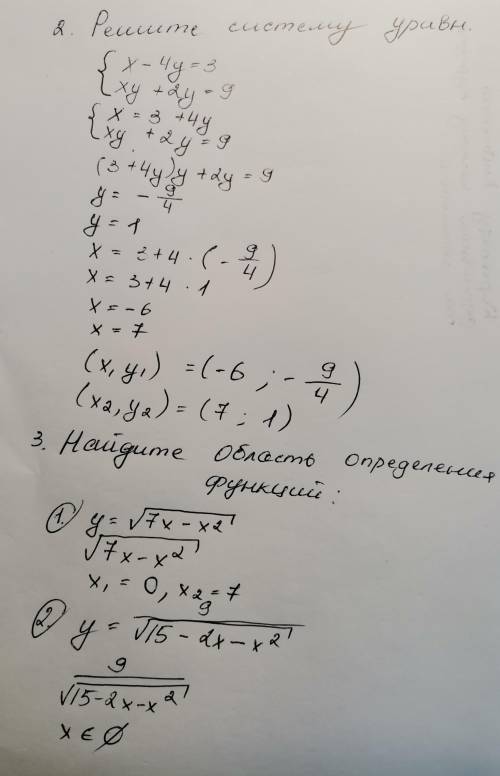 2. Решите систему уравн.
{ x - 4y = 3
xy + 2y = 9
{ x = 3 + 4y
xy + 2y = 9
(3 + 4y)y + 2y = 9
y = - 9/4
y = 1
x = 3 + 4 · (- 9/4)
x = 3 + 4 · 1
x = -6
x = 7
(x, y₁) = (-6 ; - 9/4)
(x₂, y₂) = (7 ; 1)
3. Найдите область определения
функций:
1. y = √(7x - x²)
√(7x - x²)
x₁ = 0, x₂ = 7
2) y = 9/√(15 - 2x - x²)
9/√(15 - 2x - x²)
x ∈ ∅